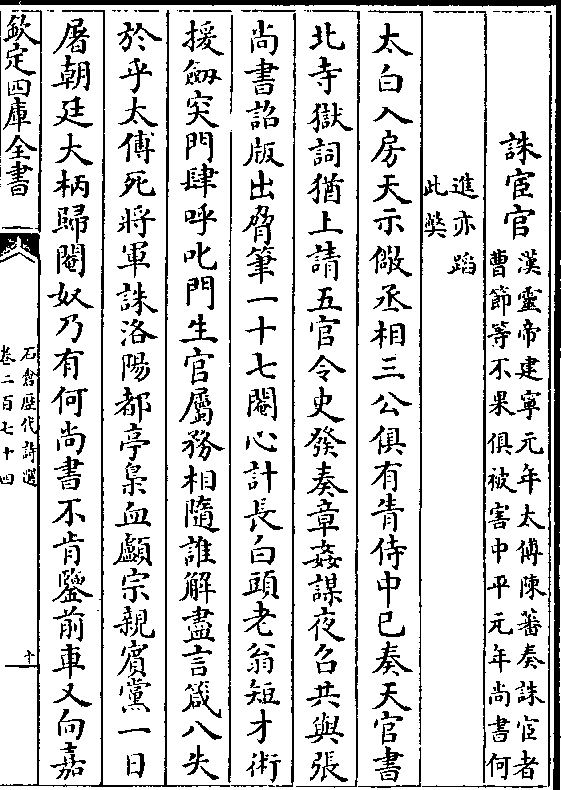 誅宦官漢靈帝建寧元年太傅陳蕃奏誅宦者
曹節等不果俱被害中平元年尚書何
進亦蹈
此獘
太白入房天示儆丞相三公俱有眚侍中已奏天官書
北寺獄詞猶上請五官令史發奏章姦謀夜召共與張
尚書詔版出脅筆一十七閹心計長白頭老翁短才術
援劒突門肆呼叱門生官屬務相隨誰解盡言箴八失
於乎太傅死將軍誅洛陽都亭梟血顱宗親賓黨一日
屠朝廷大柄歸閹奴乃有何尚書不肯鑒前車又向嘉
欽定四庫全書
石倉歷代詩選
卷二百七十四
十